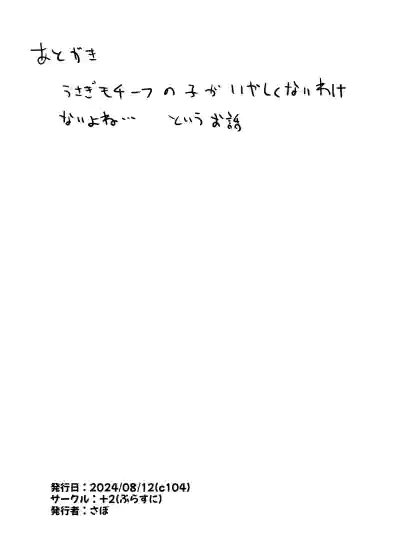 あとがき
うさぎモチーフの子がいやしくないわけ
ないよね… というお話
発行日：2024/08/12(c104)
サークル：+2(ぷらすに)
発行者：さぼ